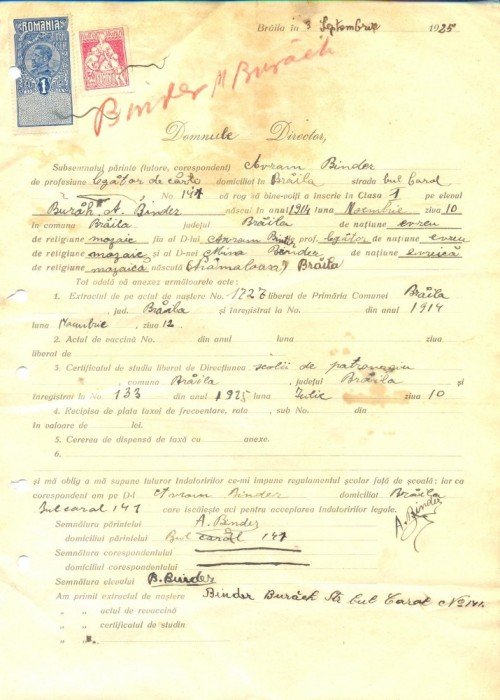 ROMANIA
1
Brăila in 3 Septembrie 1925
Binder Burăch
Domnule Director,
Subsemnatul părinte (tutore, corespondent) Avram Binder
de profesiune legător de cărți domiciliat în Brăila strada bul Carol
No. 147 vă rog să bine-voiți a inscrie în Clasa 1 pe elevul
Burăh A. Binder născut în anul 1914 luna Noembrie ziua 10
în comuna Brăila județul Brăila de națiune evreu
de religiune mozaic fiu al D-lui Avram Binder prof. legător de națiune evreu
de religiune mozaic și al D-nei Binder de națiune evreică
de religiune mozaică născută Brăila
Tot odată vă anexez următoarele acte:
1. Extractul de pe actul de naștere No. liberat de Primăria Comunei Brăila
, jud. Brăila și inregistrat la No. din anul 1914
luna Noembrie, ziua 12.
2. Actul de vaccină No. din anul luna ziua
liberat de
3. Certificatul de studia liberat de Direcțiunea școlii de patronagiu
, comuna Brăila, județul Brăila și
inregistrat la No. 133 din anul 1925 luna Iulie ziua 10
4. Recipisa de plata taxei de frecuentare, rata , sub No. din
in valoare de lei.
5. Cererea de dispensă de taxă cu anexe.
6.
și mă oblig a mă supune tuturor îndatoririlor ce-mi impune regulamentul școlar față de școală: iar ca
corespondent am pe D-l Avram Binder domiciliat Brăila
Bul carol 147 care iscălește aci pentru acceptarea îndatoririlor legale.
A. Binder
Semnătura părintelui A. Binder
domiciliul părintelui Bul carol 147
Semnătura corespondentului
domiciliul corespondentului
Semnătura elevului B. Binder
Am primit extractul de naștere Binder Burăch bul Carol No
„ „ actul de revaccină
„ „ certificatul de studia
„ „